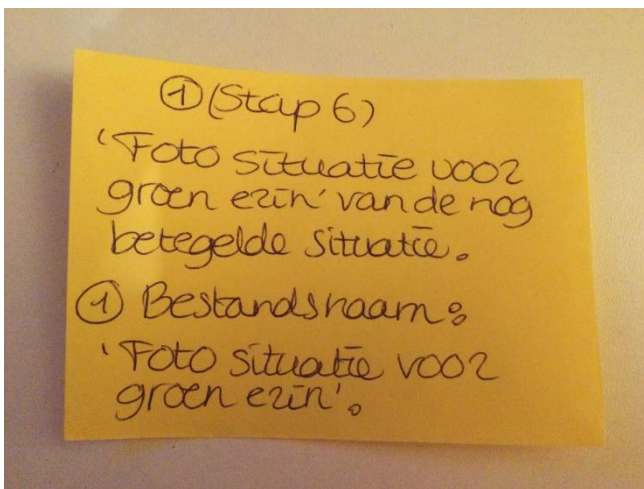 ① (Stap 6)
'Foto situatie voor
groen erin' van de nog
betegelde situatie.
① Bestandsnaam:
'Foto situatie voor
groen erin'.